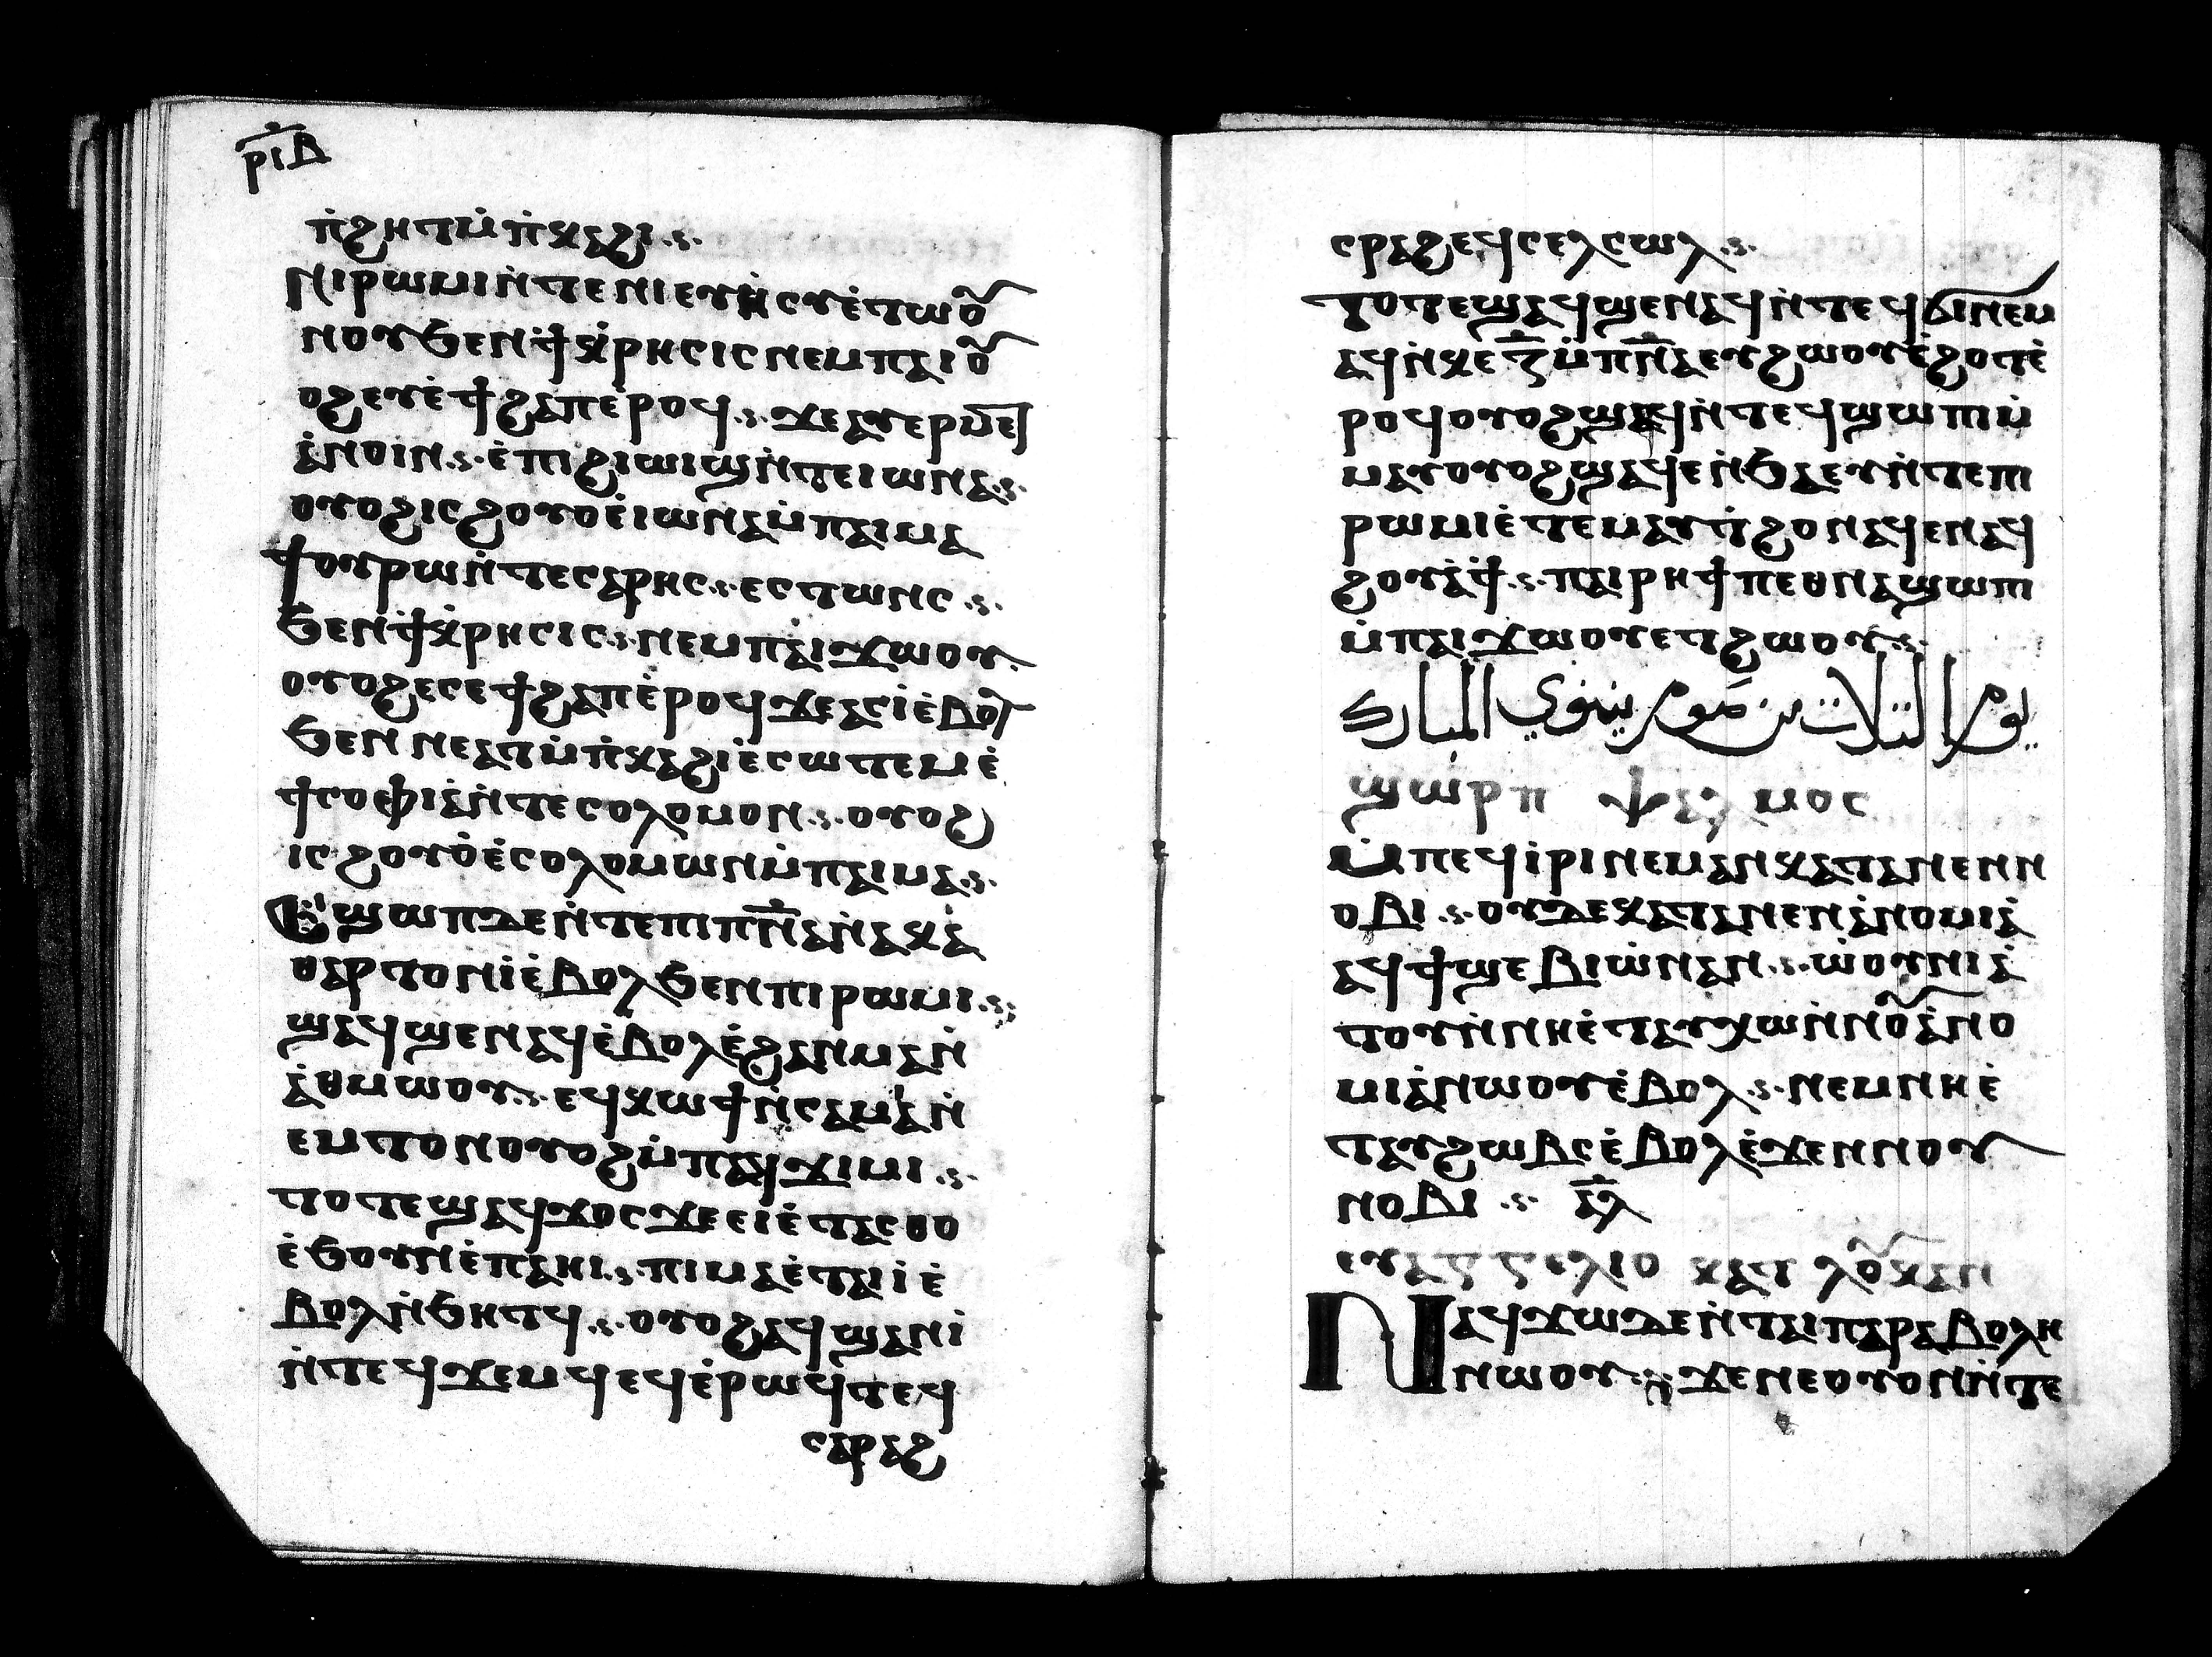 ⲣⲓⲃ
ⲛ̇ϩⲏⲧⲙ̇ⲡ̇ⲕⲁϩⲓ
ⲛⲓⲣⲱⲙⲓⲛ̇ⲧⲉⲛⲓⲉⲩⲏ̇ⲥⲩⲉ̇ⲧⲱⲟⲩ
ⲛⲟⲩϧⲉⲛϯⲕ̇ⲣⲏⲥⲓⲥⲛⲉⲙⲡⲁⲓⲟⲩ
ⲟϩⲉⲩⲉ̇ϯϩⲁⲡⲉ̇ⲣⲟϥ ϫⲉⲁⲩⲉⲣⲙⲉⲧ
ⲁ̇ⲛⲟⲓⲛ ⲉ̇ⲡⲓϩⲓⲱⲓϣⲛ̇ⲧⲉⲓⲱⲛⲁ
ⲟⲩⲟϩⲓⲥϩⲟⲩⲟⲉ̇ⲓⲱⲛⲁⲙ̇ⲡⲁⲓⲙⲁ
ϯⲟⲩⲣⲱⲛ̇ⲧⲉⲥⲁⲣⲏⲥ ⲉⲥⲧⲱⲛⲥ
ϧⲉⲛϯⲕ̇ⲣⲏⲥⲓⲥ ⲛⲉⲙⲡⲁⲓϫⲱⲟⲩ
ⲟⲩⲟϩⲉⲥⲉϯϩⲁⲡⲉ̇ⲣⲟϥϫⲉⲁⲥⲓ̇ⲉ̇ⲃⲟⲗ
ϧⲉⲛⲛⲉⲁⲧⲙ̇ⲡ̇ⲕⲁϩⲓⲉ̇ⲥⲱⲧⲉⲙⲉ̇
ϯⲥⲟⲫⲓⲁ̇ⲛ̇ⲧⲉⲥⲟⲗⲟⲙⲟⲛ ⲟⲩⲟϩ
ⲓⲥϩⲟⲩⲟ̇ⲉ̇ⲥⲟⲗⲟⲙⲱⲛⲙ̇ⲡⲁⲓⲙⲁ
ⲉϣⲱⲡⲇⲉⲛ̇ⲧⲉⲡⲓⲡ̅ⲛ̅ⲁ̇ⲛ̇ⲁⲕⲁ̇
ⲑⲁⲣⲧⲟⲛⲓ̇ⲉ̇ⲃⲟⲗϧⲉⲛⲡⲓⲣⲱⲙⲓ
ϣⲁϥϣⲉⲛⲁϥⲉ̇ⲃⲟⲗⲉ̇ϩⲁⲛⲙⲁⲛ̇
ⲁ̇ⲑⲙⲱⲟⲩ ⲉϥⲕⲱϯⲛ̇ⲥⲁⲙⲁⲛ̇
ⲉⲙⲧⲟⲛⲟⲩⲟϩⲙ̇ⲡⲁϥϫⲓⲙⲓ
ⲧⲟⲧⲉϣⲁϥϫⲟⲥϫⲉⲉⲓⲉ̇ⲧⲁⲥⲑⲟ
ⲉ̇ϧⲟⲩⲛⲉ̇ⲡⲁⲏⲓ ⲡⲓⲙⲁⲉ̇ⲧⲁⲓⲓ̇ⲉ̇
ⲃⲟⲗⲛ̇ϧⲏⲧϥ ⲟⲩⲟϩⲁϥϣⲁⲛⲓ̇
ⲛ̇ⲧⲉϥϫⲉⲙϥⲉϥⲉ̇ⲣⲱϥⲧⲉϥ
ⲥⲁⲣⲁϩ
ⲥⲣⲁϩⲉϥⲥⲉⲗⲥⲱⲗ
ⲧⲟⲧⲉϣⲁϥϣⲉⲛⲁϥⲛ̇ⲧⲉϥϭⲓⲛⲉⲙ
ⲁϥⲛ̇ⲕⲉⲍ̅ⲙ̇ⲡ̅ⲛ̅ⲁⲉⲩϩⲱⲟⲩⲉ̇ϩⲟⲧⲉ̇
ⲣⲟϥⲟⲩⲟϩϣⲁϥⲛ̇ⲧⲉϥϣⲱⲡⲓⲙ̇
ⲙⲁⲩⲟⲩⲟϩϣⲁϥⲉⲛ̇ϧⲁⲉⲩⲛ̇ⲧⲉⲡⲓ
ⲣⲱⲙⲓⲉ̇ⲧⲉⲙⲁⲩⲧ̇ϩⲟⲛⲁϥⲉⲛⲁϥ
ϩⲟⲩⲁ̇ϯ ⲡⲁⲓⲣⲏϯⲡⲉⲑⲛⲁϣⲱⲡⲓ
ⲙ̇ⲡⲁⲓϫⲱⲟⲩⲉⲧϩⲱⲟⲩ
يوم التلات من صوم نينوي المبارك
ϣⲱⲣⲡ ⲯⲁⲗⲙⲟⲥ
ⲙ̇ⲡⲉϥⲓ̇ⲣⲓⲛⲉⲙⲁⲛⲕⲁⲧⲁⲛⲉⲛⲛ
ⲟⲃⲓ ⲟⲩⲇⲉⲕⲁⲧⲁⲛⲉⲛⲁ̇ⲛⲟⲙⲓⲁ̇
ⲁϥϯϣⲉⲃⲓⲱ̇ⲛⲁⲛ ⲱ̇ⲟⲩⲛⲓⲁ̇
ⲧⲟⲩⲛ̇ⲛⲏⲉ̇ⲧⲁⲩⲭⲱⲛ̇ⲛⲟⲩⲁ̇ⲛⲟ
ⲙⲓⲁ̇ⲛⲱⲟⲩⲉ̇ⲃⲟⲗ ⲛⲉⲙⲛⲏⲉ̇
ⲧⲁⲩϩⲱⲃⲥⲉ̇ⲃⲟⲗⲉ̇ϫⲉⲛⲛⲟⲩ
ⲛⲟⲃⲓ ⲁ̅ⲗ̅
ⲉⲩⲁⲅⲅⲉⲗⲓⲟ ⲕⲁⲧ ⲗⲟⲩⲕⲁⲛ
ⲛⲁϥϫⲱⲇⲉⲛ̇ⲧⲁⲓⲡⲁⲣⲁⲃⲟⲗⲏ
ⲛⲱⲟⲩ ϫⲉⲛⲉⲟⲩⲟⲛⲛ̇ⲧⲉ